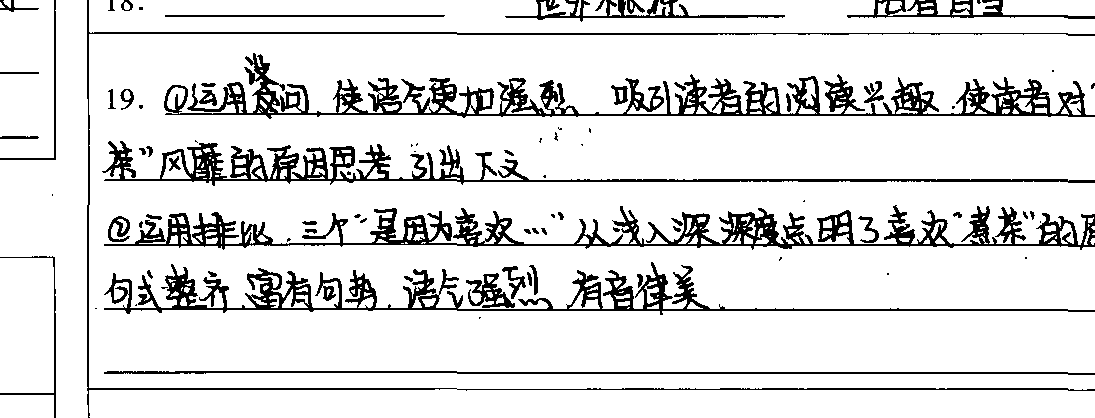 18.
19. ①运用设问，使语气更加强烈，吸引读者的阅读兴趣，使读者对“
茶”风靡的原因思考，引出下文.
②运用排比，三个“是因为喜欢…”从浅入深深度点明了喜欢“煮茶”的原
句式整齐，富有句势，语气强烈，有音律美.